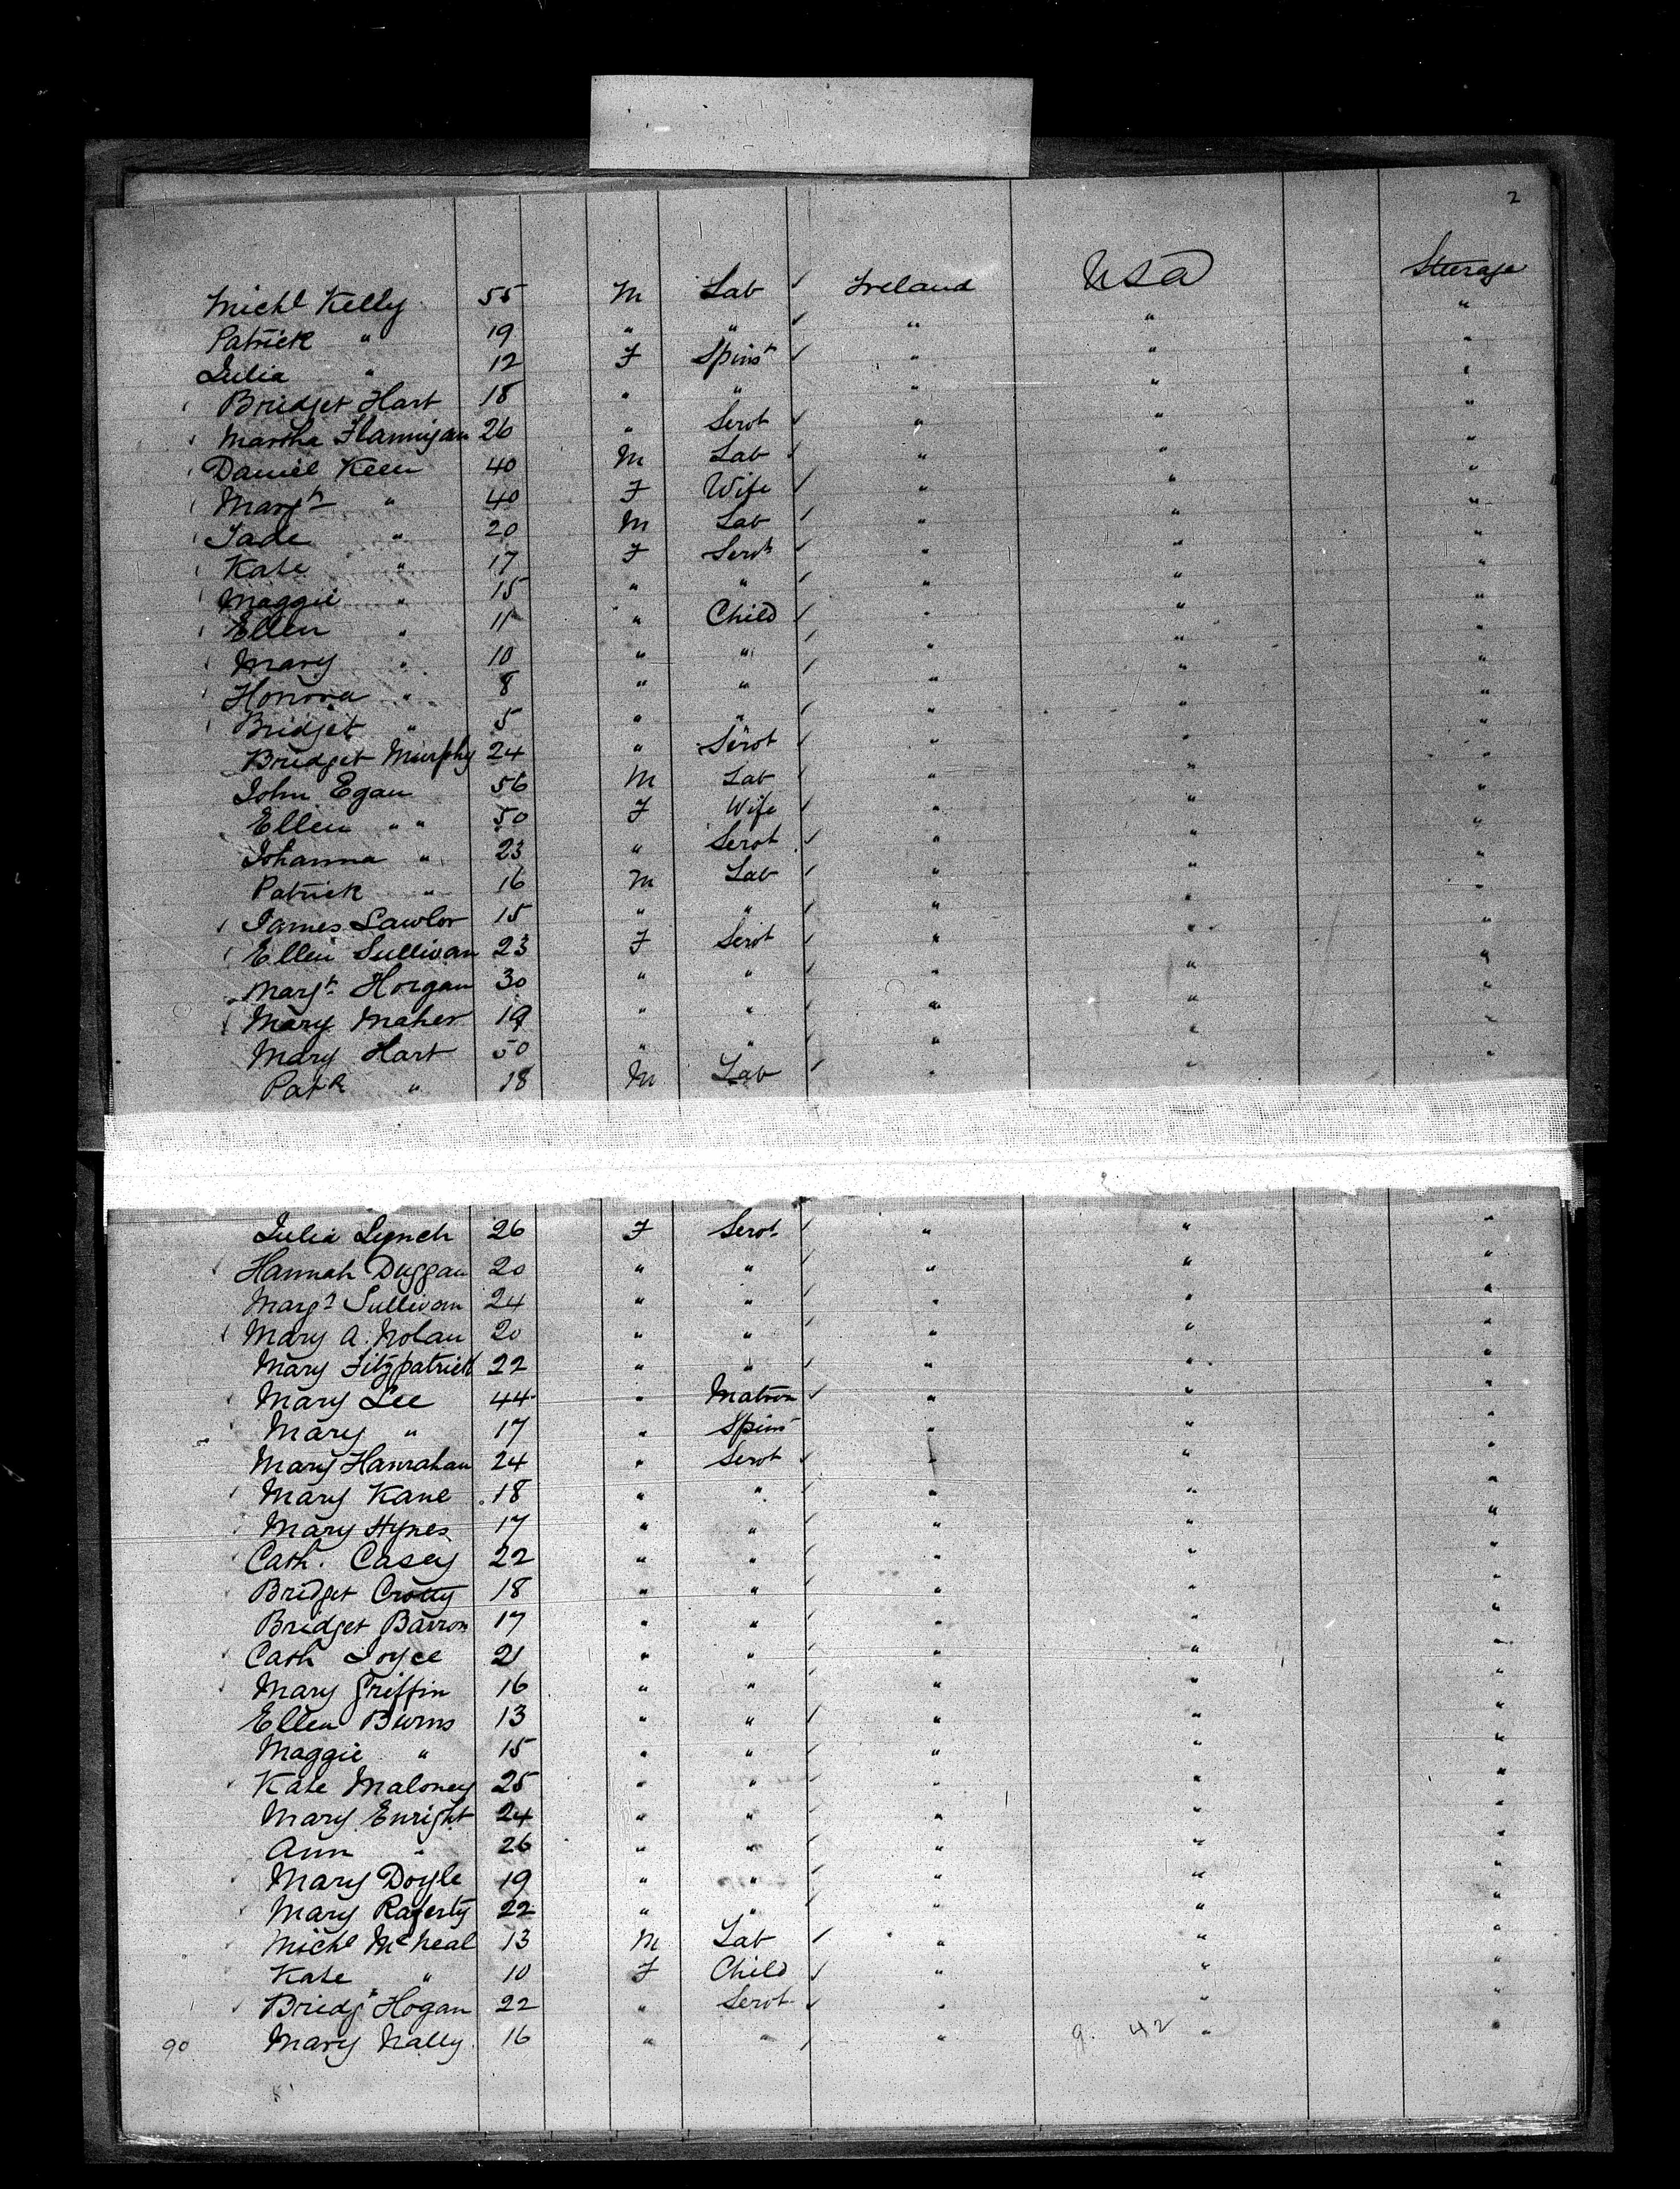 2
Michl Kelly 55 M Lab Ireland USA Steerage
Patrick " 19 " " " " "
Julia " 12 F Spinst " " "
Bridget Hart 18 " " " " "
Martha Flannigan 26 " Servt " " "
Daniel Keen 40 M Lab " " "
Margt " 40 F Wife " " "
Tade " 20 M Lab " " "
Kate " 17 F Servt " " "
Maggie " 15 " " " " "
Ellen " 11 " Child " " "
Mary " 10 " " " " "
Honora " 8 " " " " "
Bridget " 5 " " " " "
Bridget Murphy 24 " Servt " " "
John Egan 56 M Lab " " "
Ellen " " 50 F Wife " " "
Johanna " 23 " Servt " " "
Patrick " 16 M Lab " " "
James Lawlor 15 " " " " "
Ellen Sullivan 23 F Servt " " "
Margt Horgan 30 " " " " "
Mary Maher 19 " " " " "
Mary Hart 50 " " " " "
Patk " 18 M Lab " " "
Julia Lynch 26 F Servt " " "
Hannah Duggan 20 " " " " "
Margt Sullivan 24 " " " " "
Mary A. Nolan 20 " " " " "
Mary Fitzpatrick 22 " " " " "
Mary Lee 44 " Matron " " "
Mary " 17 " Spins " " "
Mary Hanrahan 24 " Servt " " "
Mary Kane 18 " " " " "
Mary Hynes 17 " " " " "
Cath. Casey 22 " " " " "
Bridget Crotty 18 " " " " "
Bridget Barron 17 " " " " "
Cath Joyce 21 " " " " "
Mary Griffin 16 " " " " "
Ellen Burns 13 " " " " "
Maggie " 15 " " " " "
Kate Maloney 25 " " " " "
Mary Enright 24 " " " " "
Ann " 26 " " " " "
Mary Doyle 19 " " " " "
Mary Raferty 22 " " " " "
Michl McNeal 13 M Lab " " "
Kate " 10 F Child " " "
Bridgt Hogan 22 " Servt " " "
90 Mary Nally 16 " " " 9. 42 " "